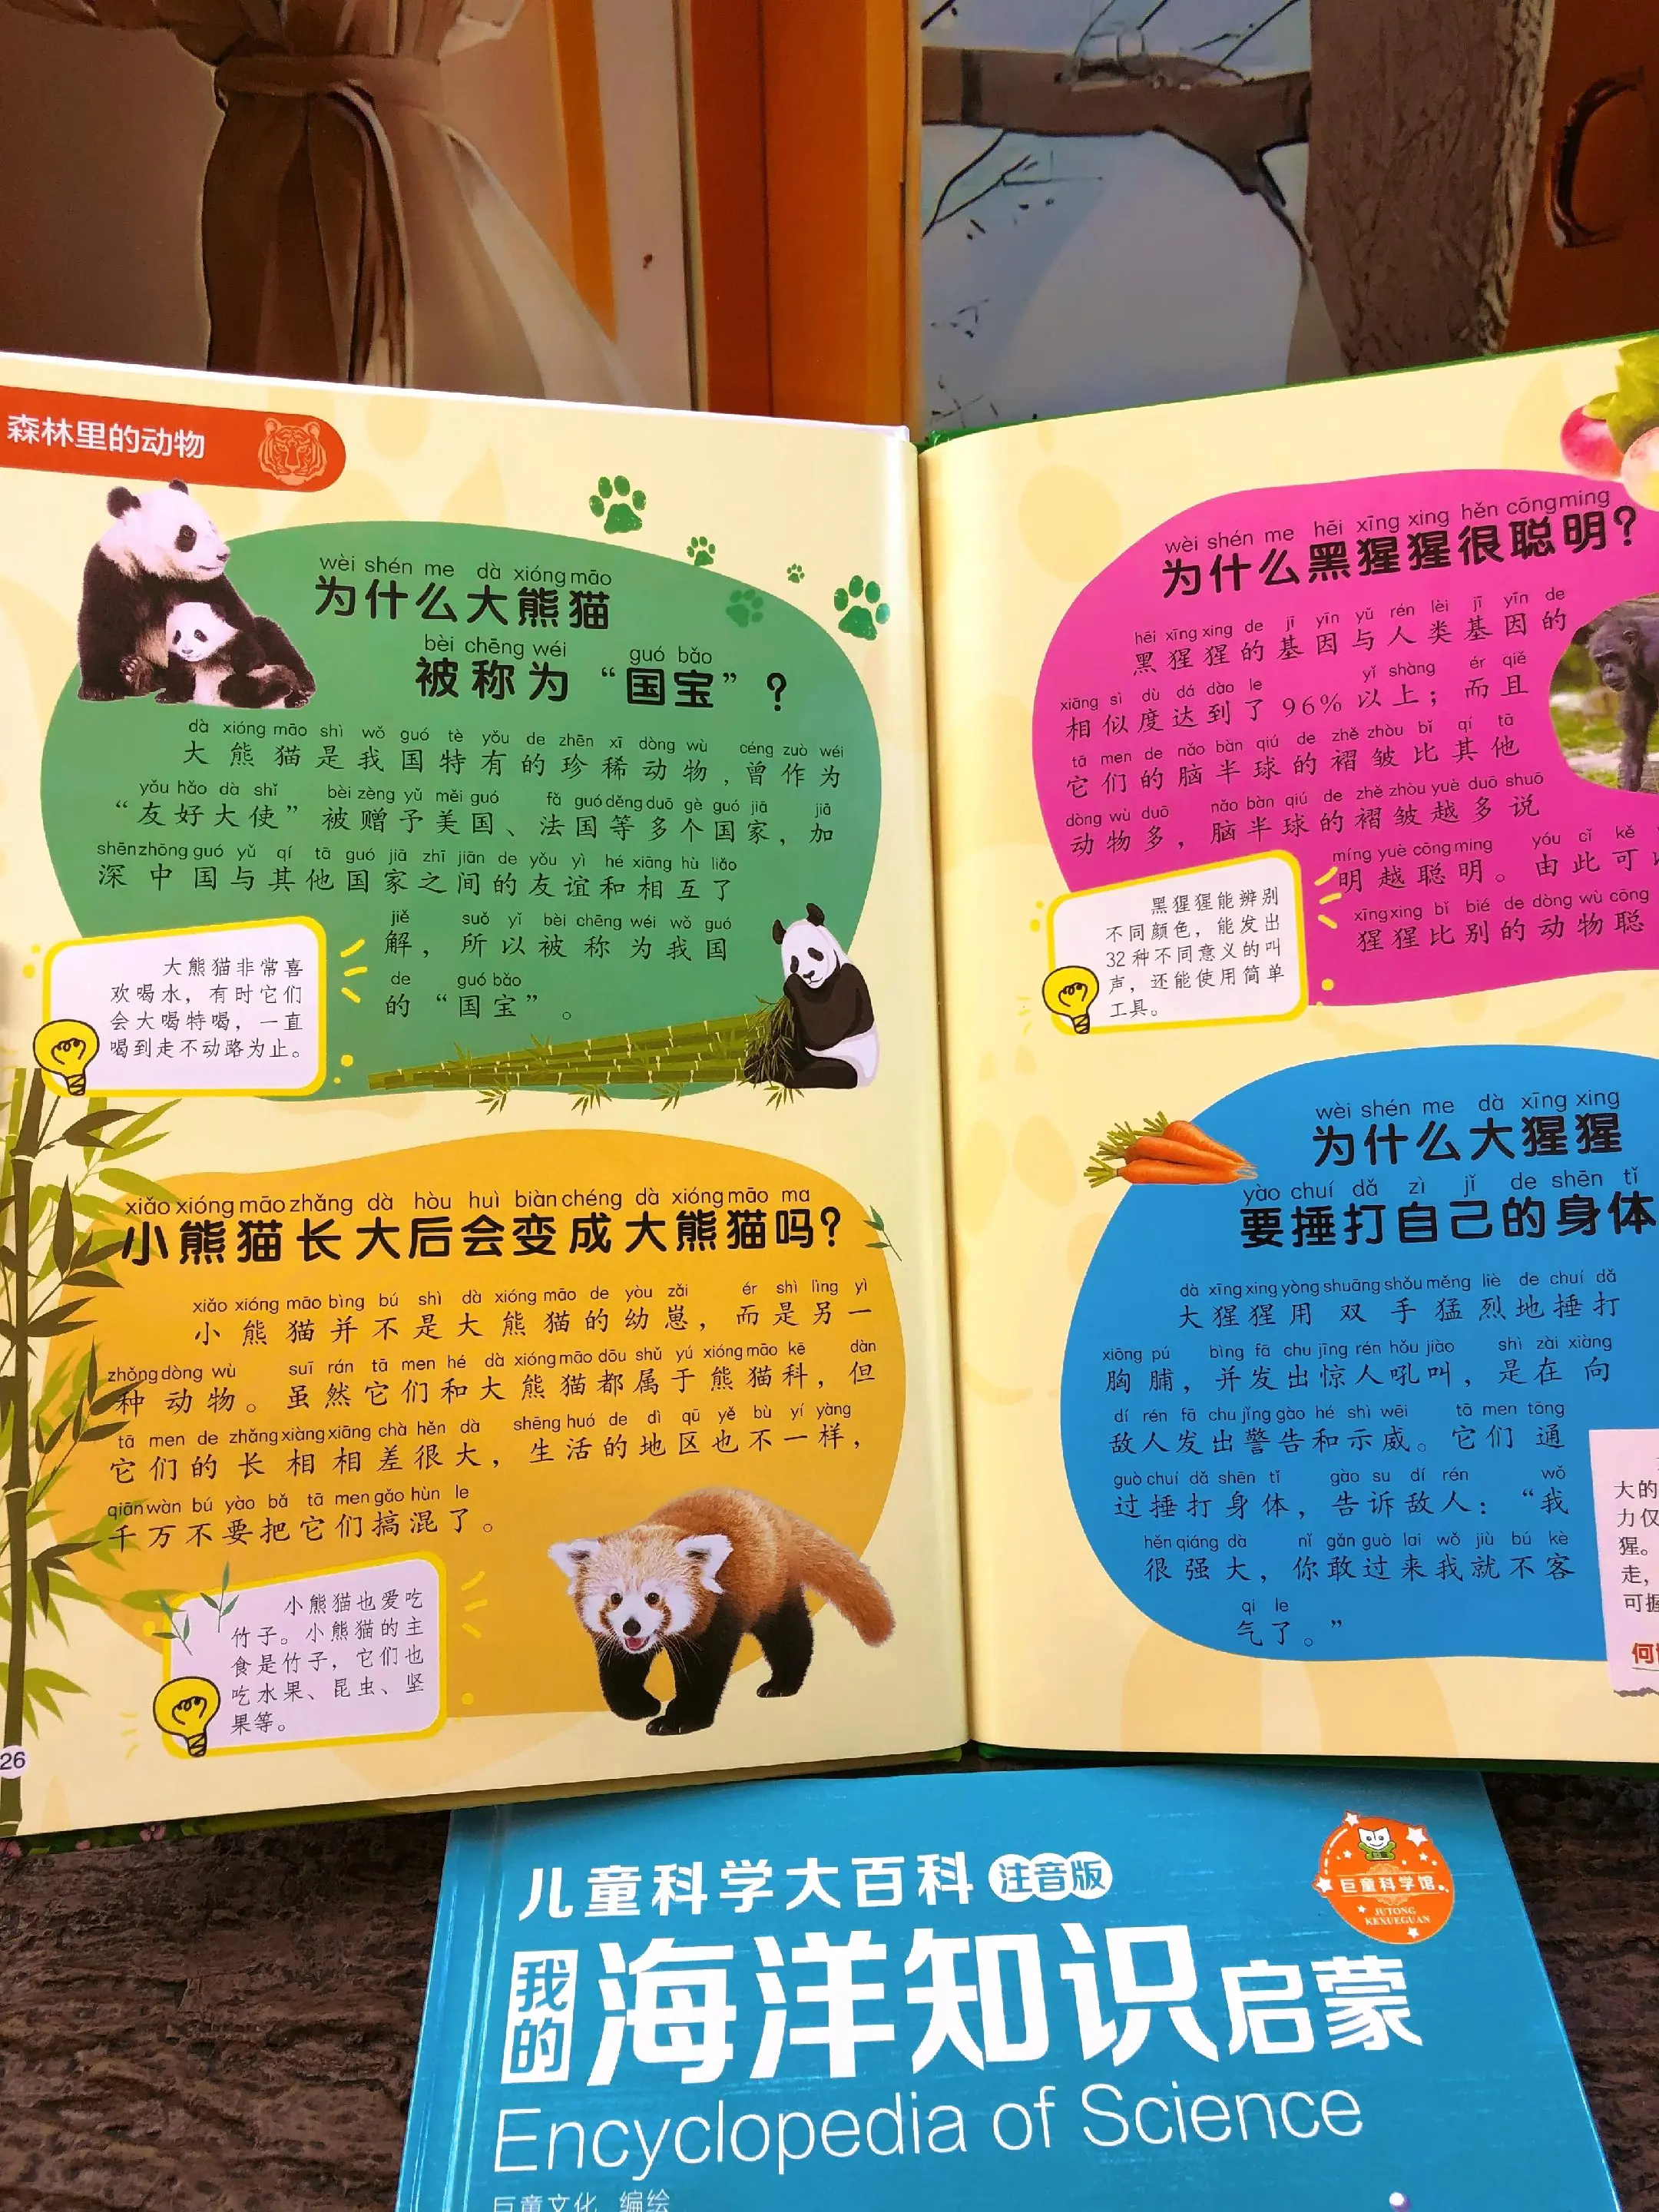 森林里的动物
wèi shén me dà xióng māo
为什么大熊猫
bèi chēng wéi guó bǎo
被称为“国宝”？
dà xióng māo shì wǒ guó tè yǒu de zhēn xī dòng wù céng zuò wéi
大熊猫是我国特有的珍稀动物，曾作为
yǒu hǎo dà shǐ bèi zèng yǔ měi guó fǎ guó děng duō gè guó jiā jiā
“友好大使”被赠予美国、法国等多个国家，加
shēn zhōng guó yǔ qí tā guó jiā zhī jiān de yǒu yì hé xiāng hù liǎo
深中国与其他国家之间的友谊和相互了
jiě suǒ yǐ bèi chēng wéi wǒ guó
解，所以被称为我国
de guó bǎo
的“国宝”。
大熊猫非常喜
欢喝水，有时它们
会大喝特喝，一直
喝到走不动路为止。
xiǎo xióng māo zhǎng dà hòu huì biàn chéng dà xióng māo ma
小熊猫长大后会变成大熊猫吗？
xiǎo xióng māo bìng bú shì dà xióng māo de yòu zǎi ér shì lìng yì
小熊猫并不是大熊猫的幼崽，而是另一
zhǒng dòng wù suī rán tā men hé dà xióng māo dōu shǔ yú xióng māo kē dàn
种动物。虽然它们和大熊猫都属于熊猫科，但
tā men de zhǎng xiàng xiāng chà hěn dà shēng huó de dì qū yě bù yí yàng
它们的长相相差很大，生活的地区也不一样，
qiān wàn bú yào bǎ tā men gǎo hùn le
千万不要把它们搞混了。
小熊猫也爱吃
竹子。小熊猫的主
食是竹子，它们也
吃水果、昆虫、坚
果等。
26
wèi shén me hēi xīng xing hěn cōng ming
为什么黑猩猩很聪明？
hēi xīng xing de jī yīn yǔ rén lèi jī yīn de
黑猩猩的基因与人类基因的
xiāng sì dù dá dào le yǐ shàng ér qiě
相似度达到了96%以上；而且
tā men de nǎo bàn qiú de zhě zhòu bǐ qí tā
它们的脑半球的褶皱比其他
dòng wù duō nǎo bàn qiú de zhě zhòu yuè duō shuō
动物多，脑半球的褶皱越多说
míng yuè cōng ming yóu cǐ kě
明越聪明。由此可
xīng xing bǐ bié de dòng wù cōng
猩猩比别的动物聪
黑猩猩能辨别
不同颜色，能发出
32种不同意义的叫
声，还能使用简单
工具。
wèi shén me dà xīng xing
为什么大猩猩
yào chuí dǎ zì jǐ de shēn tǐ
要捶打自己的身体
dà xīng xing yòng shuāng shǒu měng liè de chuí dǎ
大猩猩用双手猛烈地捶打
xiōng pú bìng fā chu jīng rén hǒu jiào shì zài xiàng
胸脯，并发出惊人吼叫，是在向
dí rén fā chu jǐng gào hé shì wēi tā men tōng
敌人发出警告和示威。它们通
guò chuí dǎ shēn tǐ gào su dí rén wǒ
过捶打身体，告诉敌人：“我
hěn qiáng dà nǐ gǎn guò lai wǒ jiù bú kè
很强大，你敢过来我就不客
qi le
气了。”
大的
力仅
猩。
走，
可握
何
儿童科学大百科 注音版
我的海洋知识启蒙
Encyclopedia of Science
巨童文化 编绘
巨童科学馆
JUTONG
KEXUEGUAN